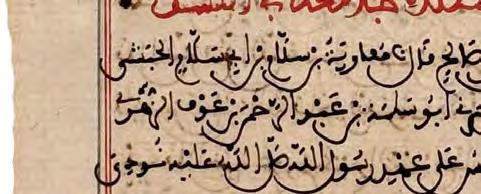 صالح قال نا معاوية بن سلام بن ابي سلام الحبشي
ني ابو سلمة بن عبد الرحمن بن عوف الزهري
على عهد رسول الله صلى الله عليه نودي